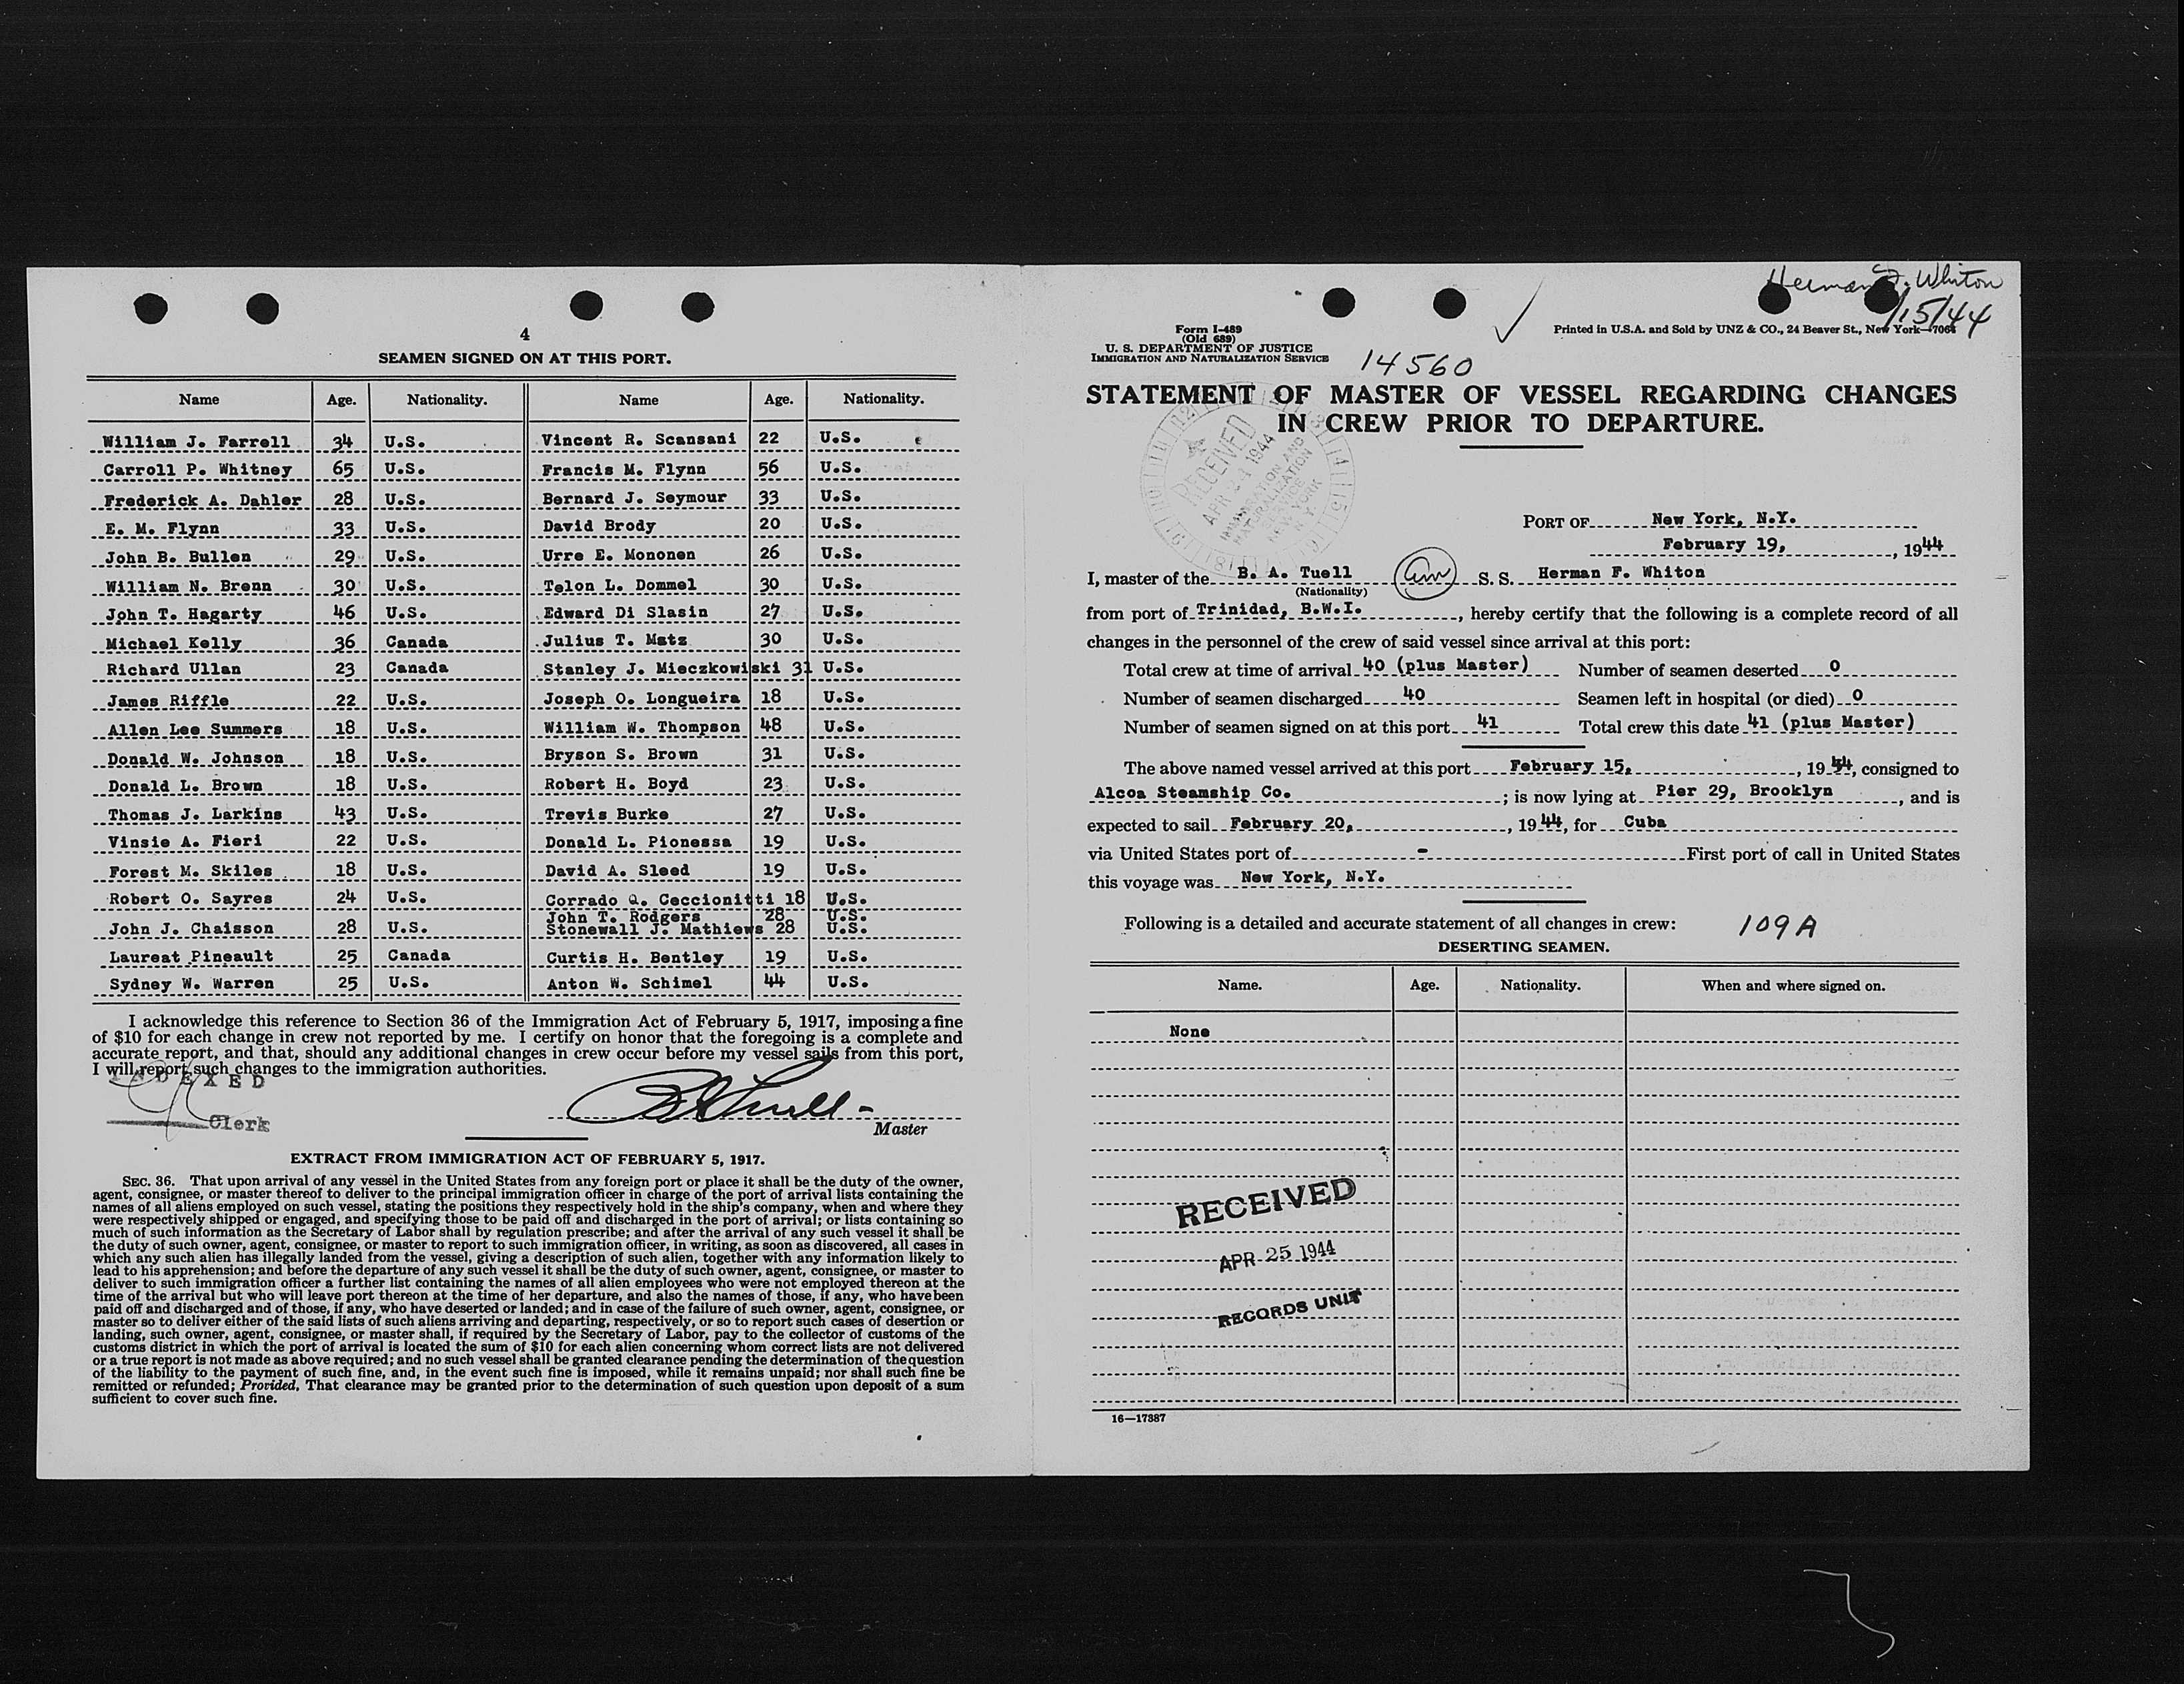 4
SEAMEN SIGNED ON AT THIS PORT.
Name Age. Nationality. Name Age. Nationality.
William J. Farrell 34 U.S. Vincent R. Scansani 22 U.S.
Carroll P. Whitney 65 U.S. Francis M. Flynn 56 U.S.
Frederick A. Dahler 28 U.S. Bernard J. Seymour 33 U.S.
E. M. Flynn 33 U.S. David Brody 20 U.S.
John B. Bullen 29 U.S. Urre E. Mononen 26 U.S.
William N. Brenn 30 U.S. Telon L. Dommel 30 U.S.
John T. Hagarty 46 U.S. Edward Di Slasin 27 U.S.
Michael Kelly 36 Canada Julius T. Matz 30 U.S.
Richard Ullan 23 Canada Stanley J. Mieczkowiski 31 U.S.
James Riffle 22 U.S. Joseph O. Longueira 18 U.S.
Allen Lee Summers 18 U.S. William W. Thompson 48 U.S.
Donald W. Johnson 18 U.S. Bryson S. Brown 31 U.S.
Donald L. Brown 18 U.S. Robert H. Boyd 23 U.S.
Thomas J. Larkins 43 U.S. Trevis Burke 27 U.S.
Vinsie A. Fieri 22 U.S. Donald L. Pionessa 19 U.S.
Forest M. Skiles 18 U.S. David A. Sleed 19 U.S.
Robert O. Sayres 24 U.S. Corrado Q. Ceccionitti 18 U.S.
John T. Rodgers 28 U.S.
John J. Chaisson 28 U.S. Stonewall J. Mathiews 28 U.S.
Laureat Pineault 25 Canada Curtis H. Bentley 19 U.S.
Sydney W. Warren 25 U.S. Anton W. Schimel 44 U.S.
I acknowledge this reference to Section 36 of the Immigration Act of February 5, 1917, imposing a fine
of $10 for each change in crew not reported by me. I certify on honor that the foregoing is a complete and
accurate report, and that, should any additional changes in crew occur before my vessel sails from this port,
I will report such changes to the immigration authorities.
INDEXED
Clerk
B A Tuell
Master
EXTRACT FROM IMMIGRATION ACT OF FEBRUARY 5, 1917.
SEC. 36. That upon arrival of any vessel in the United States from any foreign port or place it shall be the duty of the owner,
agent, consignee, or master thereof to deliver to the principal immigration officer in charge of the port of arrival lists containing the
names of all aliens employed on such vessel, stating the positions they respectively hold in the ship's company, when and where they
were respectively shipped or engaged, and specifying those to be paid off and discharged in the port of arrival; or lists containing so
much of such information as the Secretary of Labor shall by regulation prescribe; and after the arrival of any such vessel it shall be
the duty of such owner, agent, consignee, or master to report to such immigration officer, in writing, as soon as discovered, all cases in
which any such alien has illegally landed from the vessel, giving a description of such alien, together with any information likely to
lead to his apprehension; and before the departure of any such vessel it shall be the duty of such owner, agent, consignee, or master to
deliver to such immigration officer a further list containing the names of all alien employees who were not employed thereon at the
time of the arrival but who will leave port thereon at the time of her departure, and also the names of those, if any, who have been
paid off and discharged and of those, if any, who have deserted or landed; and in case of the failure of such owner, agent, consignee, or
master so to deliver either of the said lists of such aliens arriving and departing, respectively, or so to report such cases of desertion or
landing, such owner, agent, consignee, or master shall, if required by the Secretary of Labor, pay to the collector of customs of the
customs district in which the port of arrival is located the sum of $10 for each alien concerning whom correct lists are not delivered
or a true report is not made as above required; and no such vessel shall be granted clearance pending the determination of the question
of the liability to the payment of such fine, and, in the event such fine is imposed, while it remains unpaid; nor shall such fine be
remitted or refunded; Provided, That clearance may be granted prior to the determination of such question upon deposit of a sum
sufficient to cover such fine.
Herman F. Whiton
/15/44
Form I-489
(Old 689)
U. S. DEPARTMENT OF JUSTICE
IMMIGRATION AND NATURALIZATION SERVICE
Printed in U.S.A. and Sold by UNZ & CO., 24 Beaver St., New York—7064
14560
STATEMENT OF MASTER OF VESSEL REGARDING CHANGES
IN CREW PRIOR TO DEPARTURE.
RECEIVED
APR 1944
IMMIGRATION AND
NATURALIZATION
SERVICE
NEW YORK
N. Y.
PORT OF New York, N.Y.
February 19, , 1944
I, master of the B. A. Tuell Am S. S. Herman F. Whiton
(Nationality)
from port of Trinidad, B.W.I. , hereby certify that the following is a complete record of all
changes in the personnel of the crew of said vessel since arrival at this port:
Total crew at time of arrival 40 (plus Master) Number of seamen deserted 0
Number of seamen discharged 40 Seamen left in hospital (or died) 0
Number of seamen signed on at this port 41 Total crew this date 41 (plus Master)
The above named vessel arrived at this port February 15, , 1944, consigned to
Alcoa Steamship Co. ; is now lying at Pier 29, Brooklyn , and is
expected to sail February 20, , 1944, for Cuba
via United States port of - First port of call in United States
this voyage was New York, N.Y.
Following is a detailed and accurate statement of all changes in crew: 109A
DESERTING SEAMEN.
Name. Age. Nationality. When and where signed on.
None
RECEIVED
APR 25 1944
RECORDS UNIT
16—17387